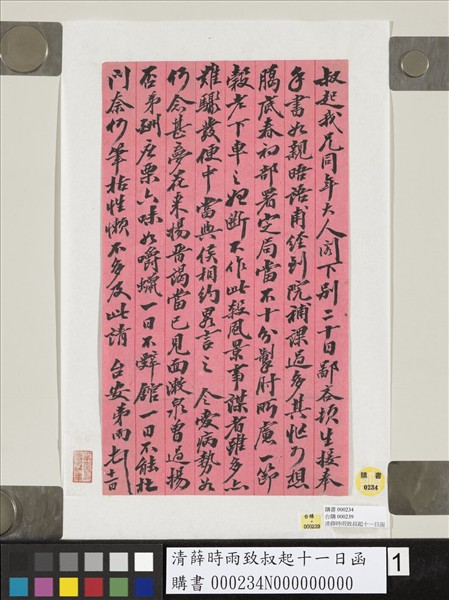 叔起我兄同年大人閣下別二十日鄙吝頓生接奉
手書如親晤語甫經到院補課過多其忙可想
臈底春初部署定局當不十分掣肘所慮一節
穀老下車之始斷不作此殺風景事謀者雖多亦
難驟發便中當與侯相約畧言之 令愛病勢如
何念甚夢花来揚晉謁當已見面漱泉曾過揚
否弟酬應味如嚼蠟一日不辭館一日不能杜
門奈何筆枯性懶不多及此請 台安弟雨
購書
0234
台購
000239
購書 000234
台購 000239
清薛時雨致叔起十一日函
清薛時雨致叔起十一日函
購書 000234N000000000
1